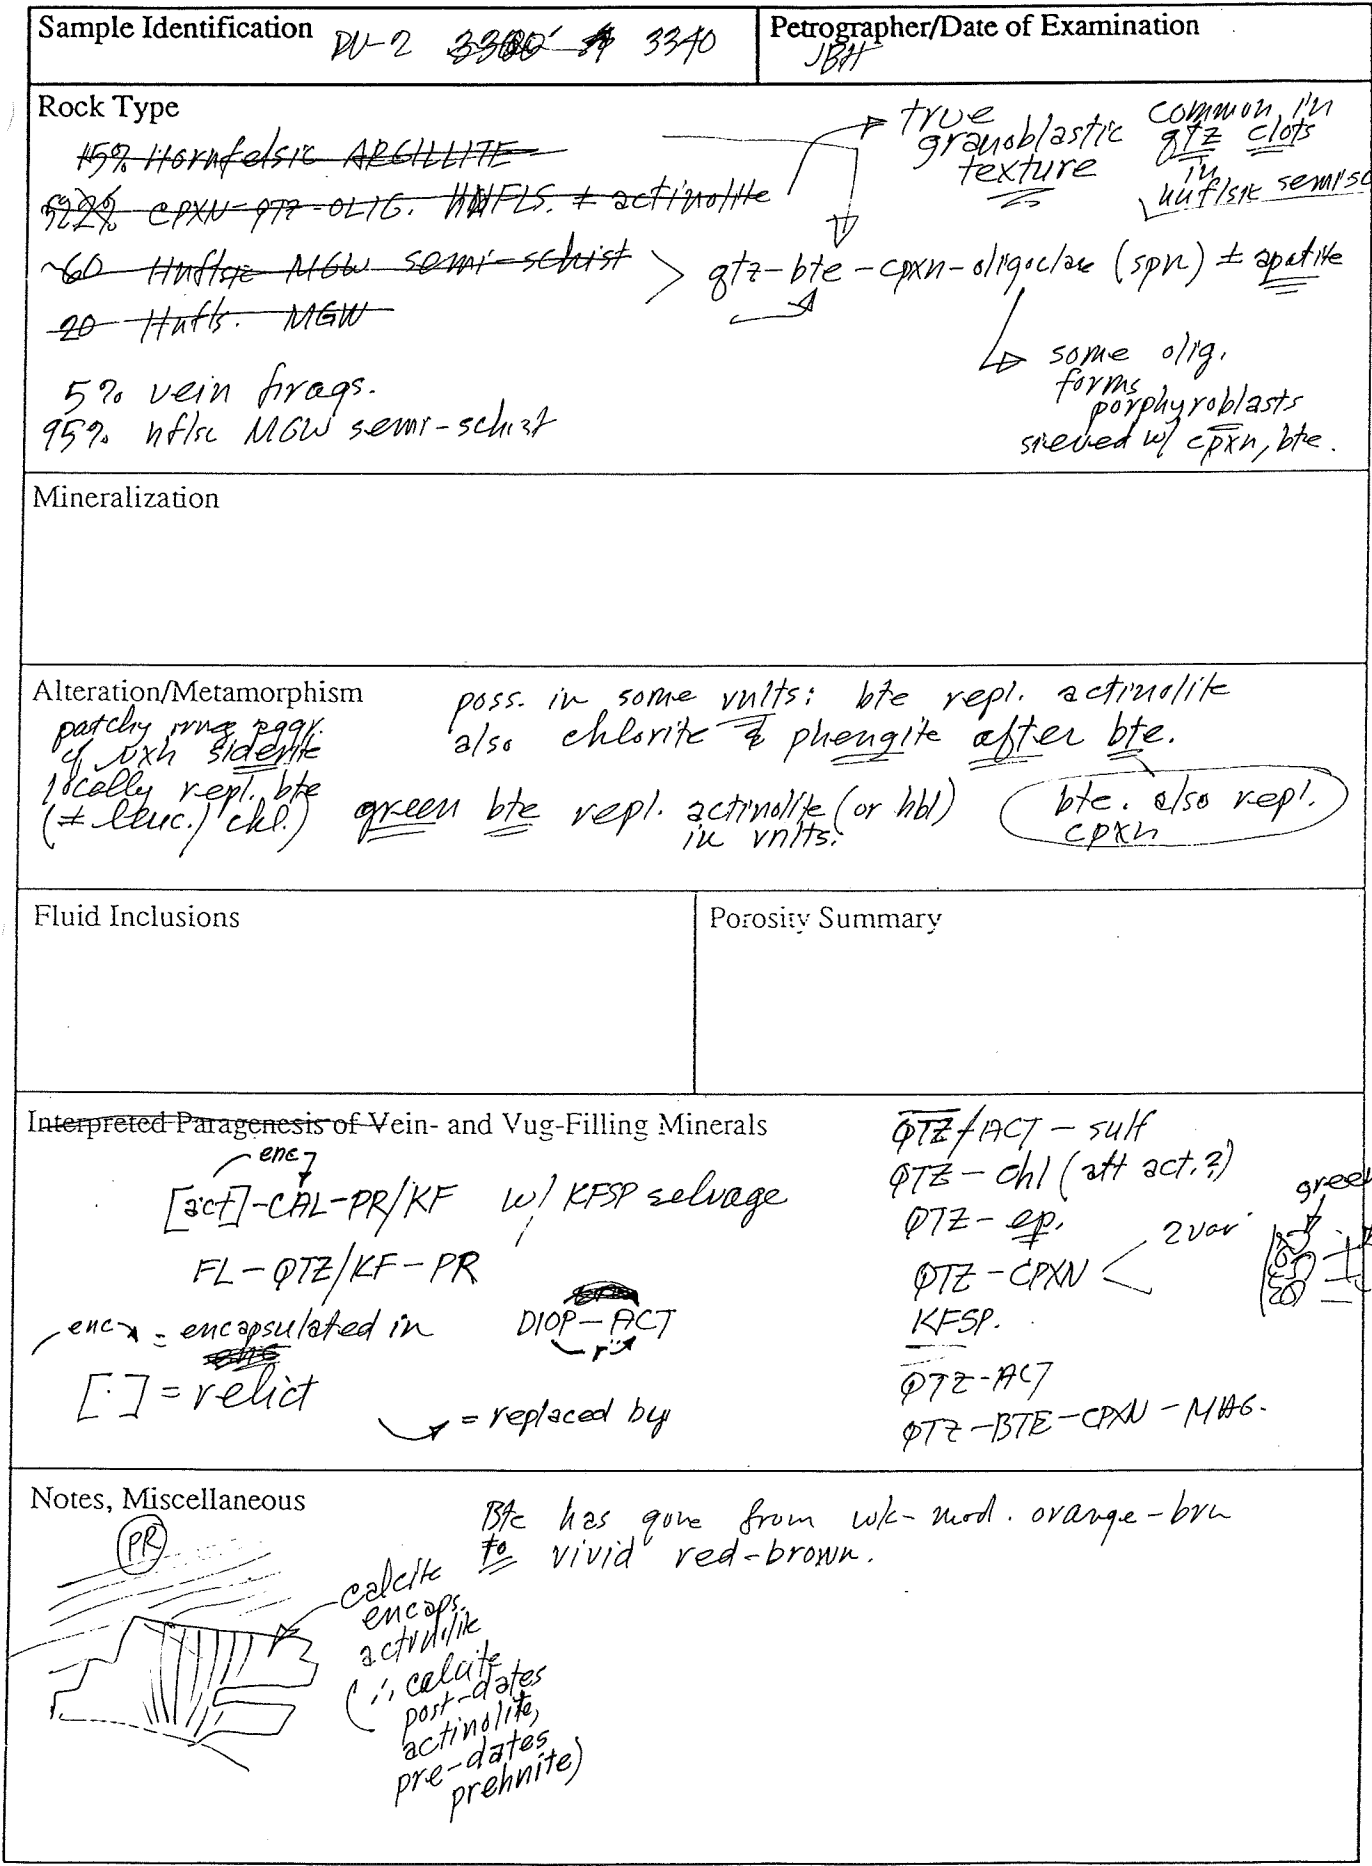 Sample Identification DV-2 3300' 3340
Petrographer/Date of Examination
JBH
Rock Type
15% Hornfelsic ARGILLITE
CPXN-QTZ-OLIG. HNFLS. ± actinolite
~60 Hnflsic MGW semi-schist
20 Hnfls. MGW
5% vein frags.
95% hflsc MGW semi-schist
true
granoblastic
texture
common in
qtz clots
in
hnflsic semisc
> qtz-bte-cpxn-oligoclase (spn) ± apatite
some olig.
forms
porphyroblasts
sieved w/ cpxn, bte.
Mineralization
Alteration/Metamorphism
patchy aggr.
of siderite
locally repl. bte
(± leuc.) chl.)
poss. in some vnlts: bte repl. actinolite
also chlorite & phengite after bte.
green bte repl. actinolite (or hbl)
in vnlts.
bte. also repl.
cpxn
Fluid Inclusions
Porosity Summary
Interpreted Paragenesis of Vein- and Vug-Filling Minerals
enc
[act]-CAL-PR/KF w/ KFSP selvage
FL-QTZ/KF-PR
enc = encapsulated in
[·] = relict
DIOP-ACT
r
= replaced by
QTZ/ACT - sulf
QTZ - chl (aft act.?)
QTZ - ep.
QTZ - CPXN < 2 var
KFSP.
QTZ-ACT
QTZ-BTE-CPXN-MAG.
green
Notes, Miscellaneous
PR
calcite
encaps.
actinolite
(∴ calcite
post-dates
actinolite,
pre-dates
prehnite)
Bte has gone from wk-mod. orange-brn
to vivid red-brown.